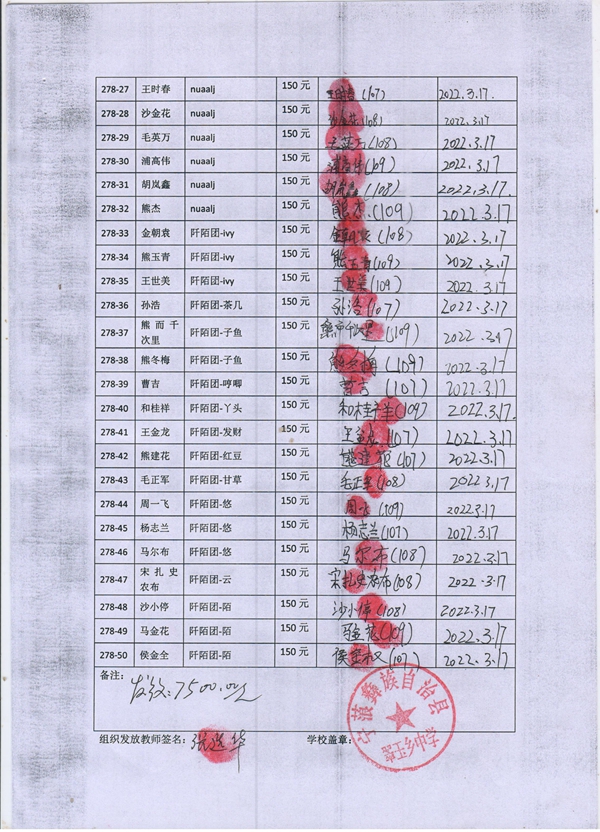 278-27 王时春 nuaalj 150 元 王时春 (107) 2022.3.17.
278-28 沙金花 nuaalj 150 元 (108) 2022.3.17
278-29 毛英万 nuaalj 150 元 毛英万 (108) 2022.3.17
278-30 浦高伟 nuaalj 150 元 浦高伟 (109) 2022.3.17
278-31 胡岚鑫 nuaalj 150 元 胡岚鑫 (108) 2022.3.17
278-32 熊杰 nuaalj 150 元 熊杰 (109) 2022.3.17
278-33 金朝袁 阡陌团-ivy 150 元 (108) 2022.3.17
278-34 熊玉青 阡陌团-ivy 150 元 熊玉青 (109) 2022.3.17
278-35 王世美 阡陌团-ivy 150 元 王世美 (109) 2022.3.17
278-36 孙浩 阡陌团-茶几 150 元 孙浩 (107) 2022.3.17
278-37 熊而千次里 阡陌团-子鱼 150 元 (109) 2022.3.17
278-38 熊冬梅 阡陌团-子鱼 150 元 熊冬梅 (109) 2022.3.17
278-39 曹吉 阡陌团-哼唧 150 元 曹吉 (107) 2022.3.17
278-40 和桂祥 阡陌团-丫头 150 元 和桂祥 (109) 2022.3.17.
278-41 王金龙 阡陌团-发财 150 元 王金龙 (107) 2022.3.17
278-42 熊建花 阡陌团-红豆 150 元 熊建花 (107) 2022.3.17
278-43 毛正军 阡陌团-甘草 150 元 毛正军 (108) 2022.3.17
278-44 周一飞 阡陌团-悠 150 元 周一飞 (109) 2022.3.17
278-45 杨志兰 阡陌团-悠 150 元 杨志兰 (107) 2022.3.17
278-46 马尔布 阡陌团-悠 150 元 马尔布 (108) 2022.3.17
278-47 宋扎史农布 阡陌团-云 150 元 宋扎史农布 (108) 2022.3.17
278-48 沙小停 阡陌团-陌 150 元 沙小停 (108) 2022.3.17
278-49 马金花 阡陌团-陌 150 元 马金花 (109) 2022.3.17
278-50 侯金全 阡陌团-陌 150 元 (107) 2022.3.17
备注：
发放:7500.00元
组织发放教师签名： 学校盖章：
宁蒗彝族自治县